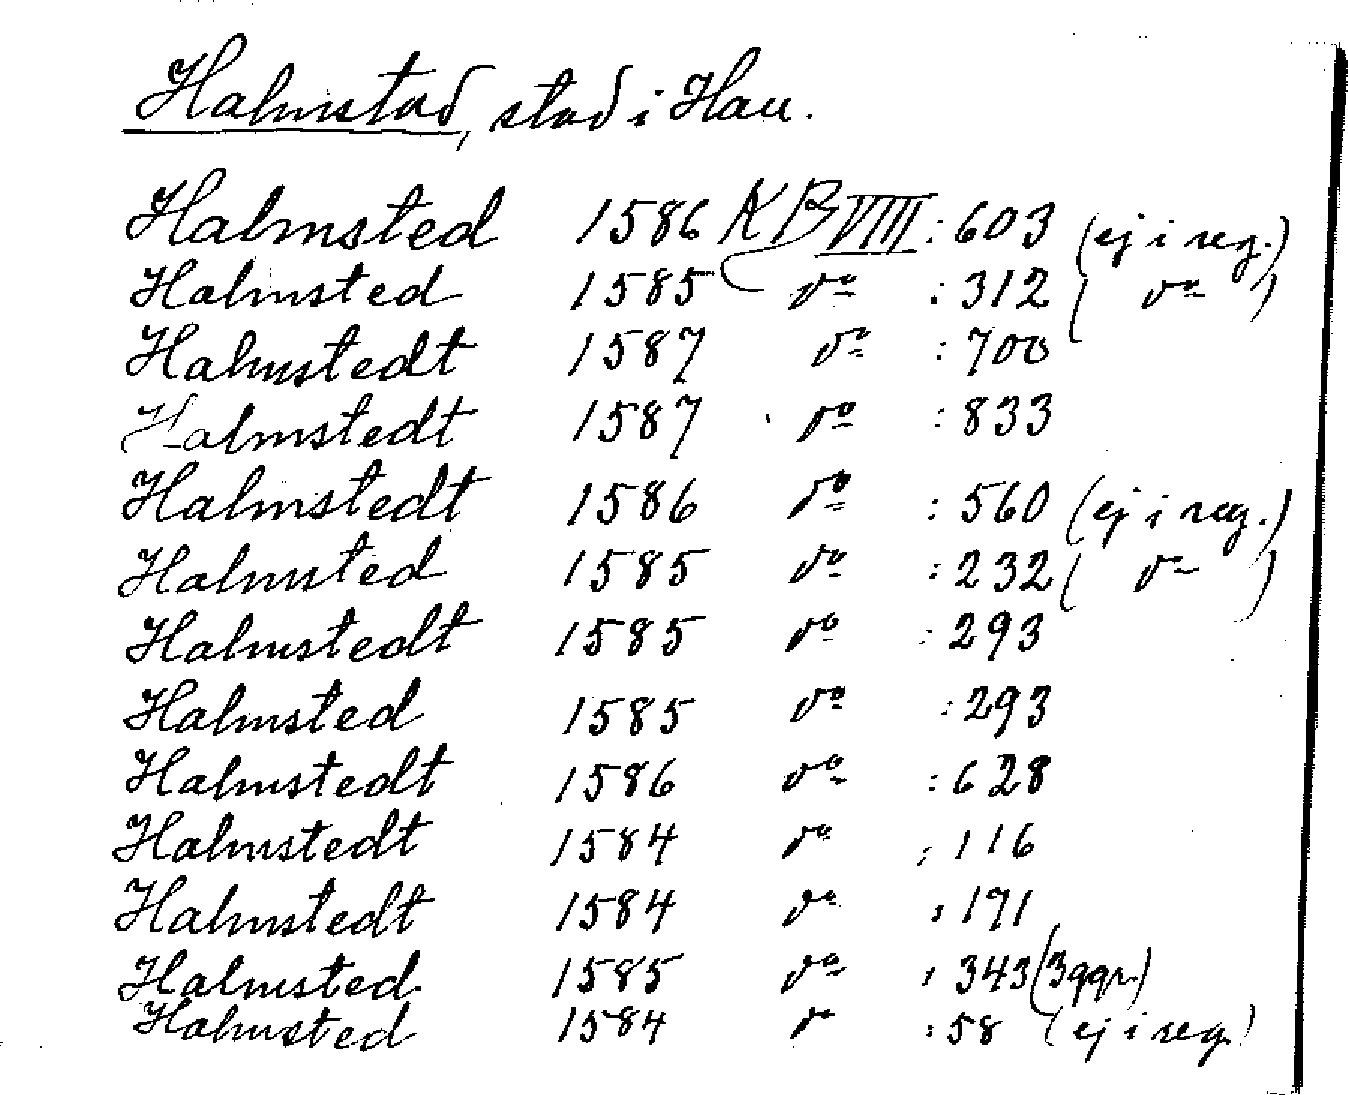 Halmstad, stad i Hall.
Halmsted 1586 KB VIII : 603 (ej i reg.)
Halmsted 1585 do : 312 ( do )
Halmstedt 1587 do : 700
Halmstedt 1587 do : 833
Halmstedt 1586 do : 560 (ej i reg.)
Halmsted 1585 do : 232 ( do )
Halmstedt 1585 do : 293
Halmsted 1585 do : 293
Halmstedt 1586 do : 628
Halmstedt 1584 do : 116
Halmstedt 1584 do : 171
Halmsted 1585 do : 343 (3 ggr.)
Halmsted 1584 do : 58 (ej i reg.)